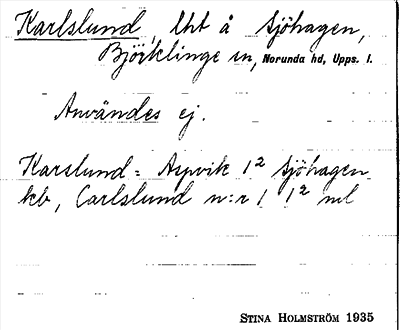 Karlslund, Lht å Sjöhagen,
Björklinge sn, Norunda hd, Upps. l.
Användes ej.
Karslund = Aspvik 1² Sjöhagen
kb, Carlslund n:r 1 1² ml
STINA HOLMSTRÖM 1935